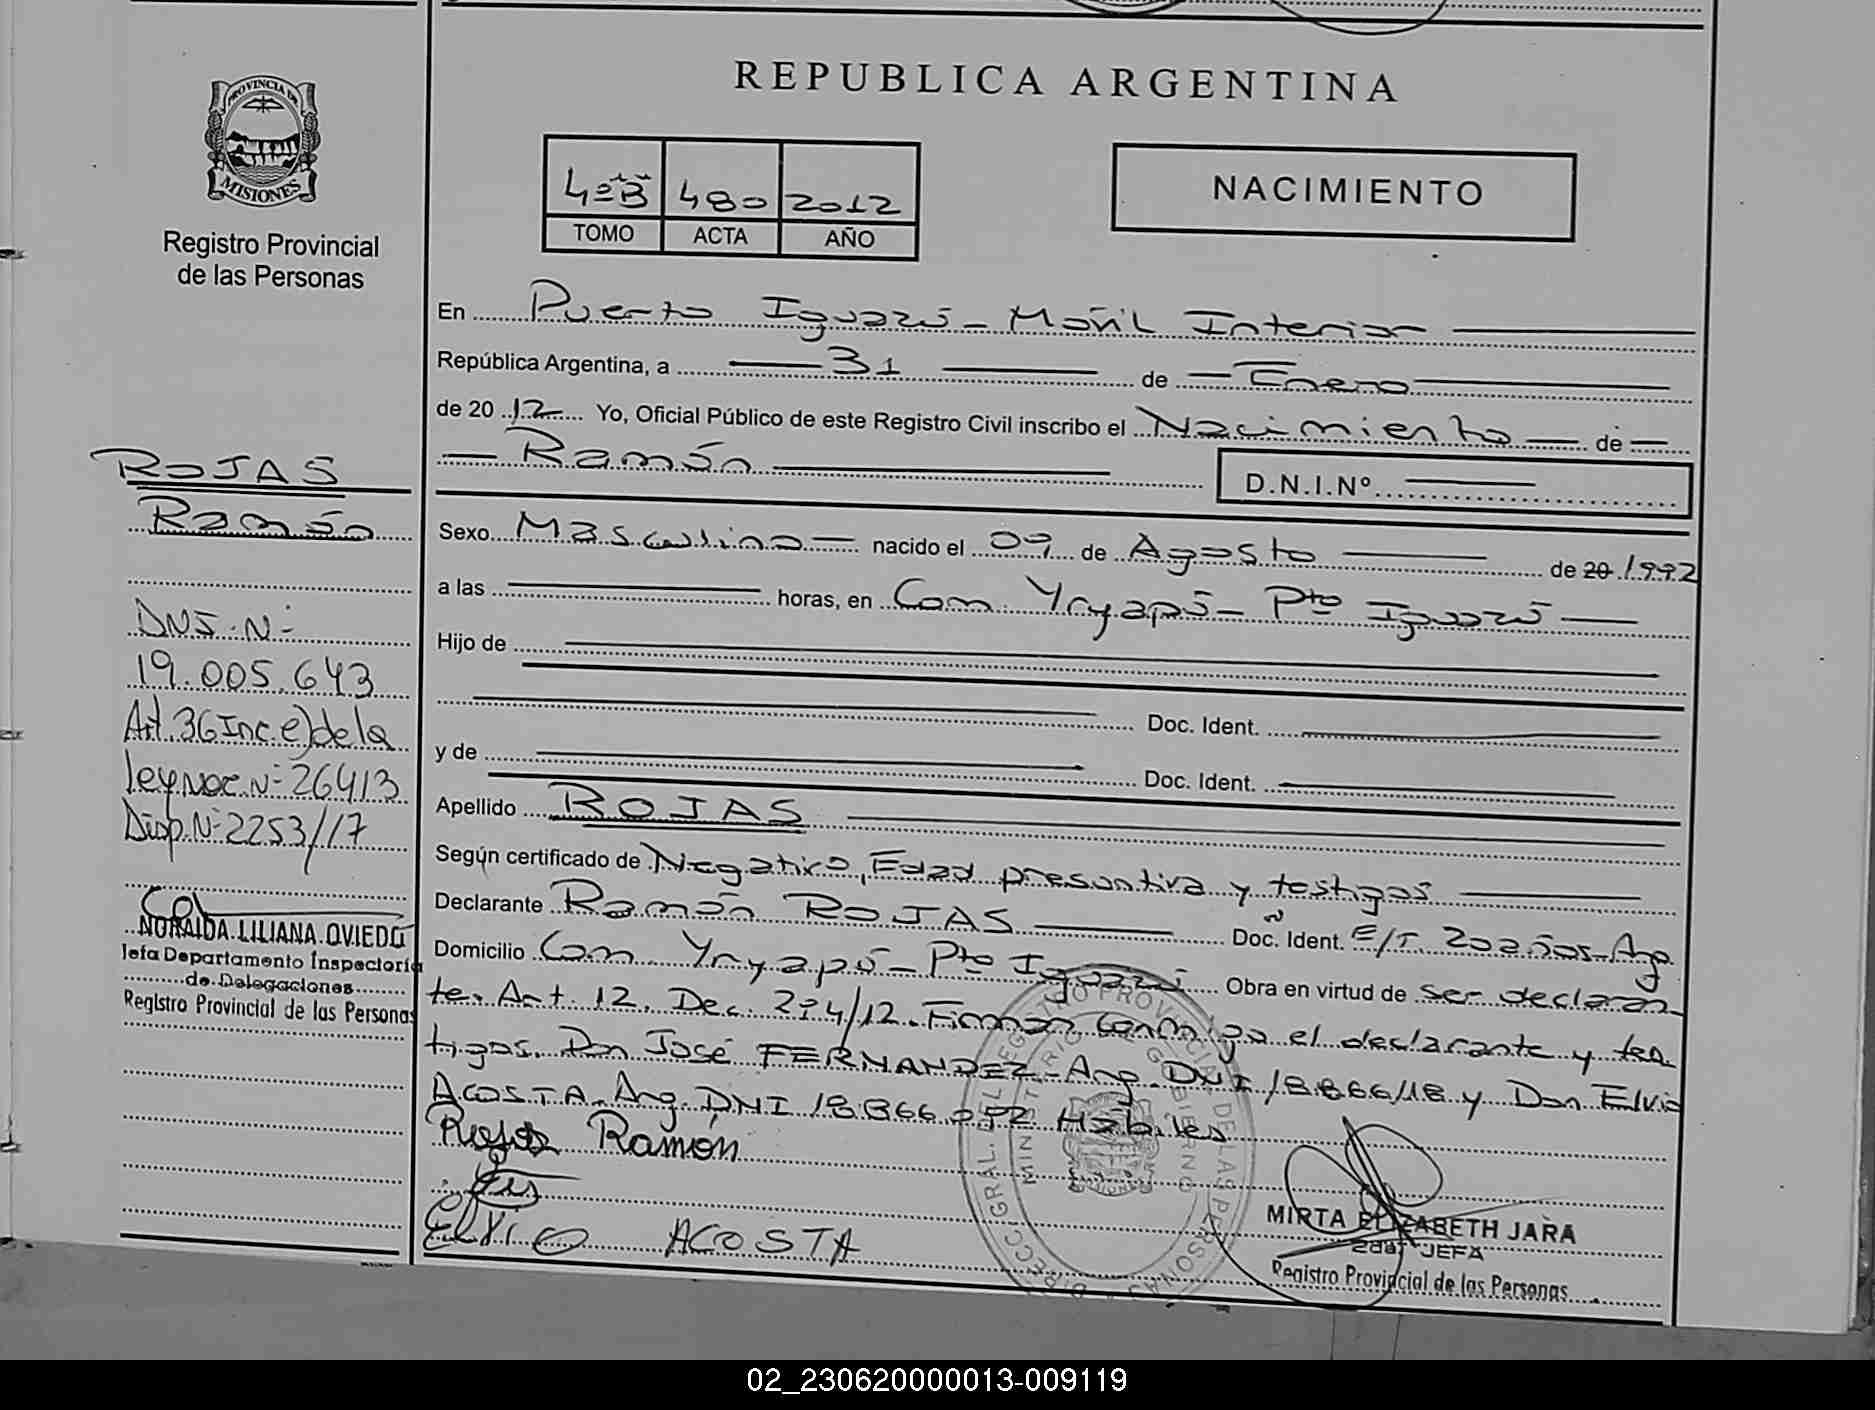 REPUBLICA ARGENTINA
PROVINCIA DE
MISIONES
Registro Provincial
de las Personas
4º"B" 480 2012
TOMO ACTA AÑO
NACIMIENTO
En Puerto Iguazú - Móvil Interior
República Argentina, a 31 de Enero
de 2012 Yo, Oficial Público de este Registro Civil inscribo el Nacimiento de
Ramón D.N.I.Nº
Sexo Masculino nacido el 09 de Agosto de 20 1992
a las horas, en Com Yryapú - Pto Iguazú
Hijo de
Doc. Ident.
y de Doc. Ident.
Apellido ROJAS
Según certificado de Negativo, Edad presuntiva y testigos
Declarante Ramón ROJAS Doc. Ident. E/T. 20 años - Arg.
Domicilio Com Yryapú - Pto Iguazú Obra en virtud de ser declaran
te. Art. 12. Dec. 294/12. Firman conmigo el declarante y tes
tigos. Don José FERNANDEZ - Arg. DNI 18.866.118 y Don Elvio
ACOSTA. Arg. DNI 18.866.052 Hábiles
Rojas Ramón
Elvio ACOSTA
ROJAS
Ramón
DNI. Nº
19.005.643
Art. 36 Inc. e) de la
ley Nac. Nº 26413
Disp. Nº 2253/17
NORAIDA LILIANA OVIEDO
Jefa Departamento Inspectoría
de Delegaciones
Registro Provincial de las Personas
DIRECC. GRAL. DEL REGISTRO PROVINCIAL DE LAS PERSONAS
MINISTERIO DE GOBIERNO
MISIONES
MIRTA ELIZABETH JARA
JEFA
Registro Provincial de las Personas
02_230620000013-009119